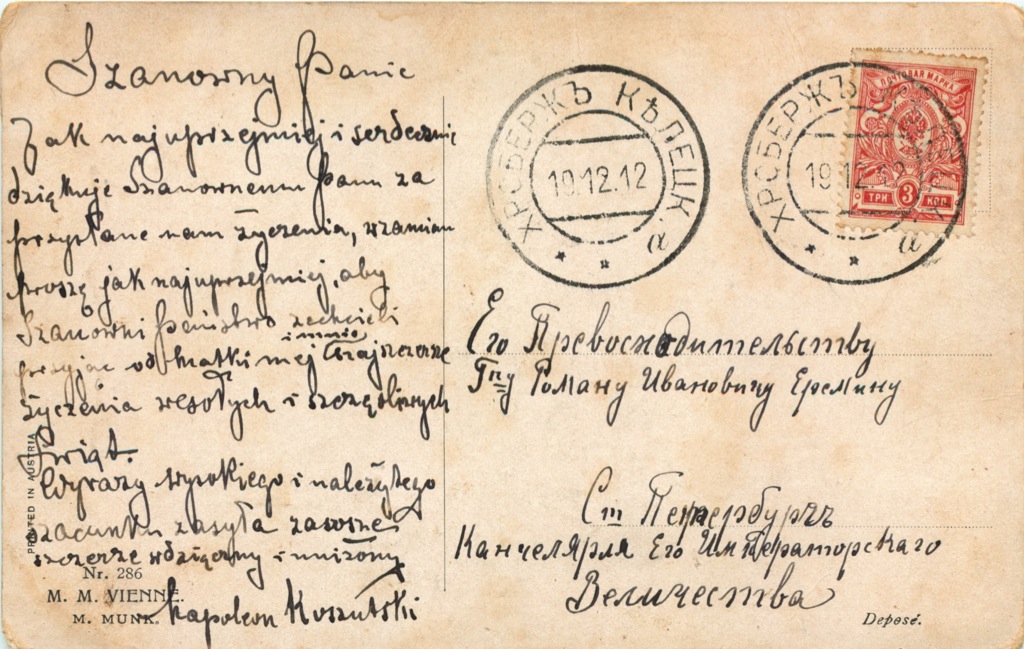 Szanowny Panie
Jak najuprzejmiej i serdecznie
dziękuje Szanownemu Panu za
przysłane nam życzenia, wzamian
proszę jak najuprzejmiej, aby
Szanowni Państwo zechcieli
i mnie
przyjąc od matki mej najszczersze
życzenia wesołych i szczęśliwych
Świąt.
Wyrazy wysokiego i należytego
szacunku zasyła zawsze
szczerze wdzięczny i uniżony
Napoleon Koszutski
PRINTED IN AUSTRIA
Nr. 286
M. M. VIENNE.
M. MUNK.
ХРОБЕРЖЪ КѢЛЕЦК.
19.12.12
а
ХРОБЕРЖЪ
19.12.12
а
ПОЧТОВАЯ МАРКА
ТРИ 3 КОП.
Его Превосходительству
Гну Роману Ивановичу Еремину
Ст Петербургъ
Канчелярля Его Императорскаго
Величества
Déposé.